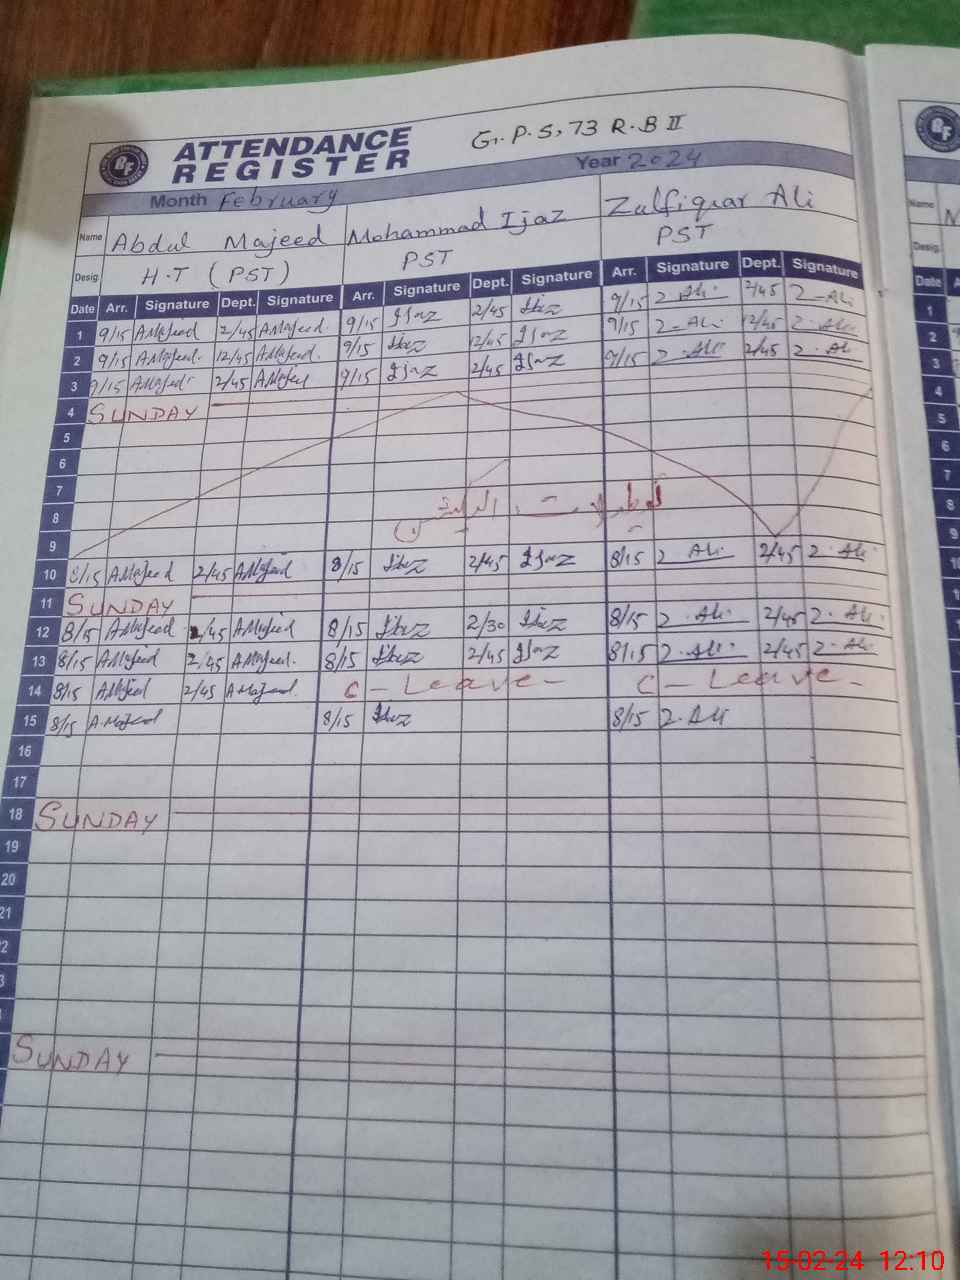 G. P. S, 73 R.B II
ATTENDANCE
REGISTER
Year 2024
Month February
Name Abdul Majeed Mohammad Ijaz Zulfiqar Ali
Desig. H.T (PST) PST PST
Date Arr. Signature Dept. Signature Arr. Signature Dept. Signature Arr. Signature Dept. Signature
1 9/15 AMajeed 2/45 AMajeed. 9/15 Ijaz 2/45 Ijaz 9/15 Z Ali 2/45 Z-Ali
2 9/15 AMajeed. 12/45 AMajeed. 9/15 Ijaz 12/45 Ijaz 9/15 Z-Ali 12/45 Z-Ali
3 9/15 AMajeed 2/45 AMajeed 9/15 Ijaz 2/45 Ijaz 9/15 Z.Ali 2/45 Z.Ali
4 SUNDAY
5
6
7
8
9
10 8/15 AMajeed 2/45 AMajeed 8/15 Ijaz 2/45 Ijaz 8/15 Z Ali 2/45 Z.Ali
11 SUNDAY
12 8/15 AMajeed 2/45 AMajeed 8/15 Ijaz 2/30 Ijaz 8/15 Z.Ali 2/45 Z.Ali
13 8/15 AMajeed 2/45 AMajeed. 8/15 Ijaz 2/45 Ijaz 8/15 Z.Ali 2/45 Z.Ali
14 8/15 AMajeed 2/45 AMajeed. C-Leave- C-Leave-
15 8/15 A.Majeed 8/15 Ijaz 8/15 Z.Ali
16
17
18 SUNDAY
19
20
21
SUNDAY
Name
Desig.
Date
1
2
3
4
5
6
7
8
9
10
11
12
13
14
15-02-24 12:10